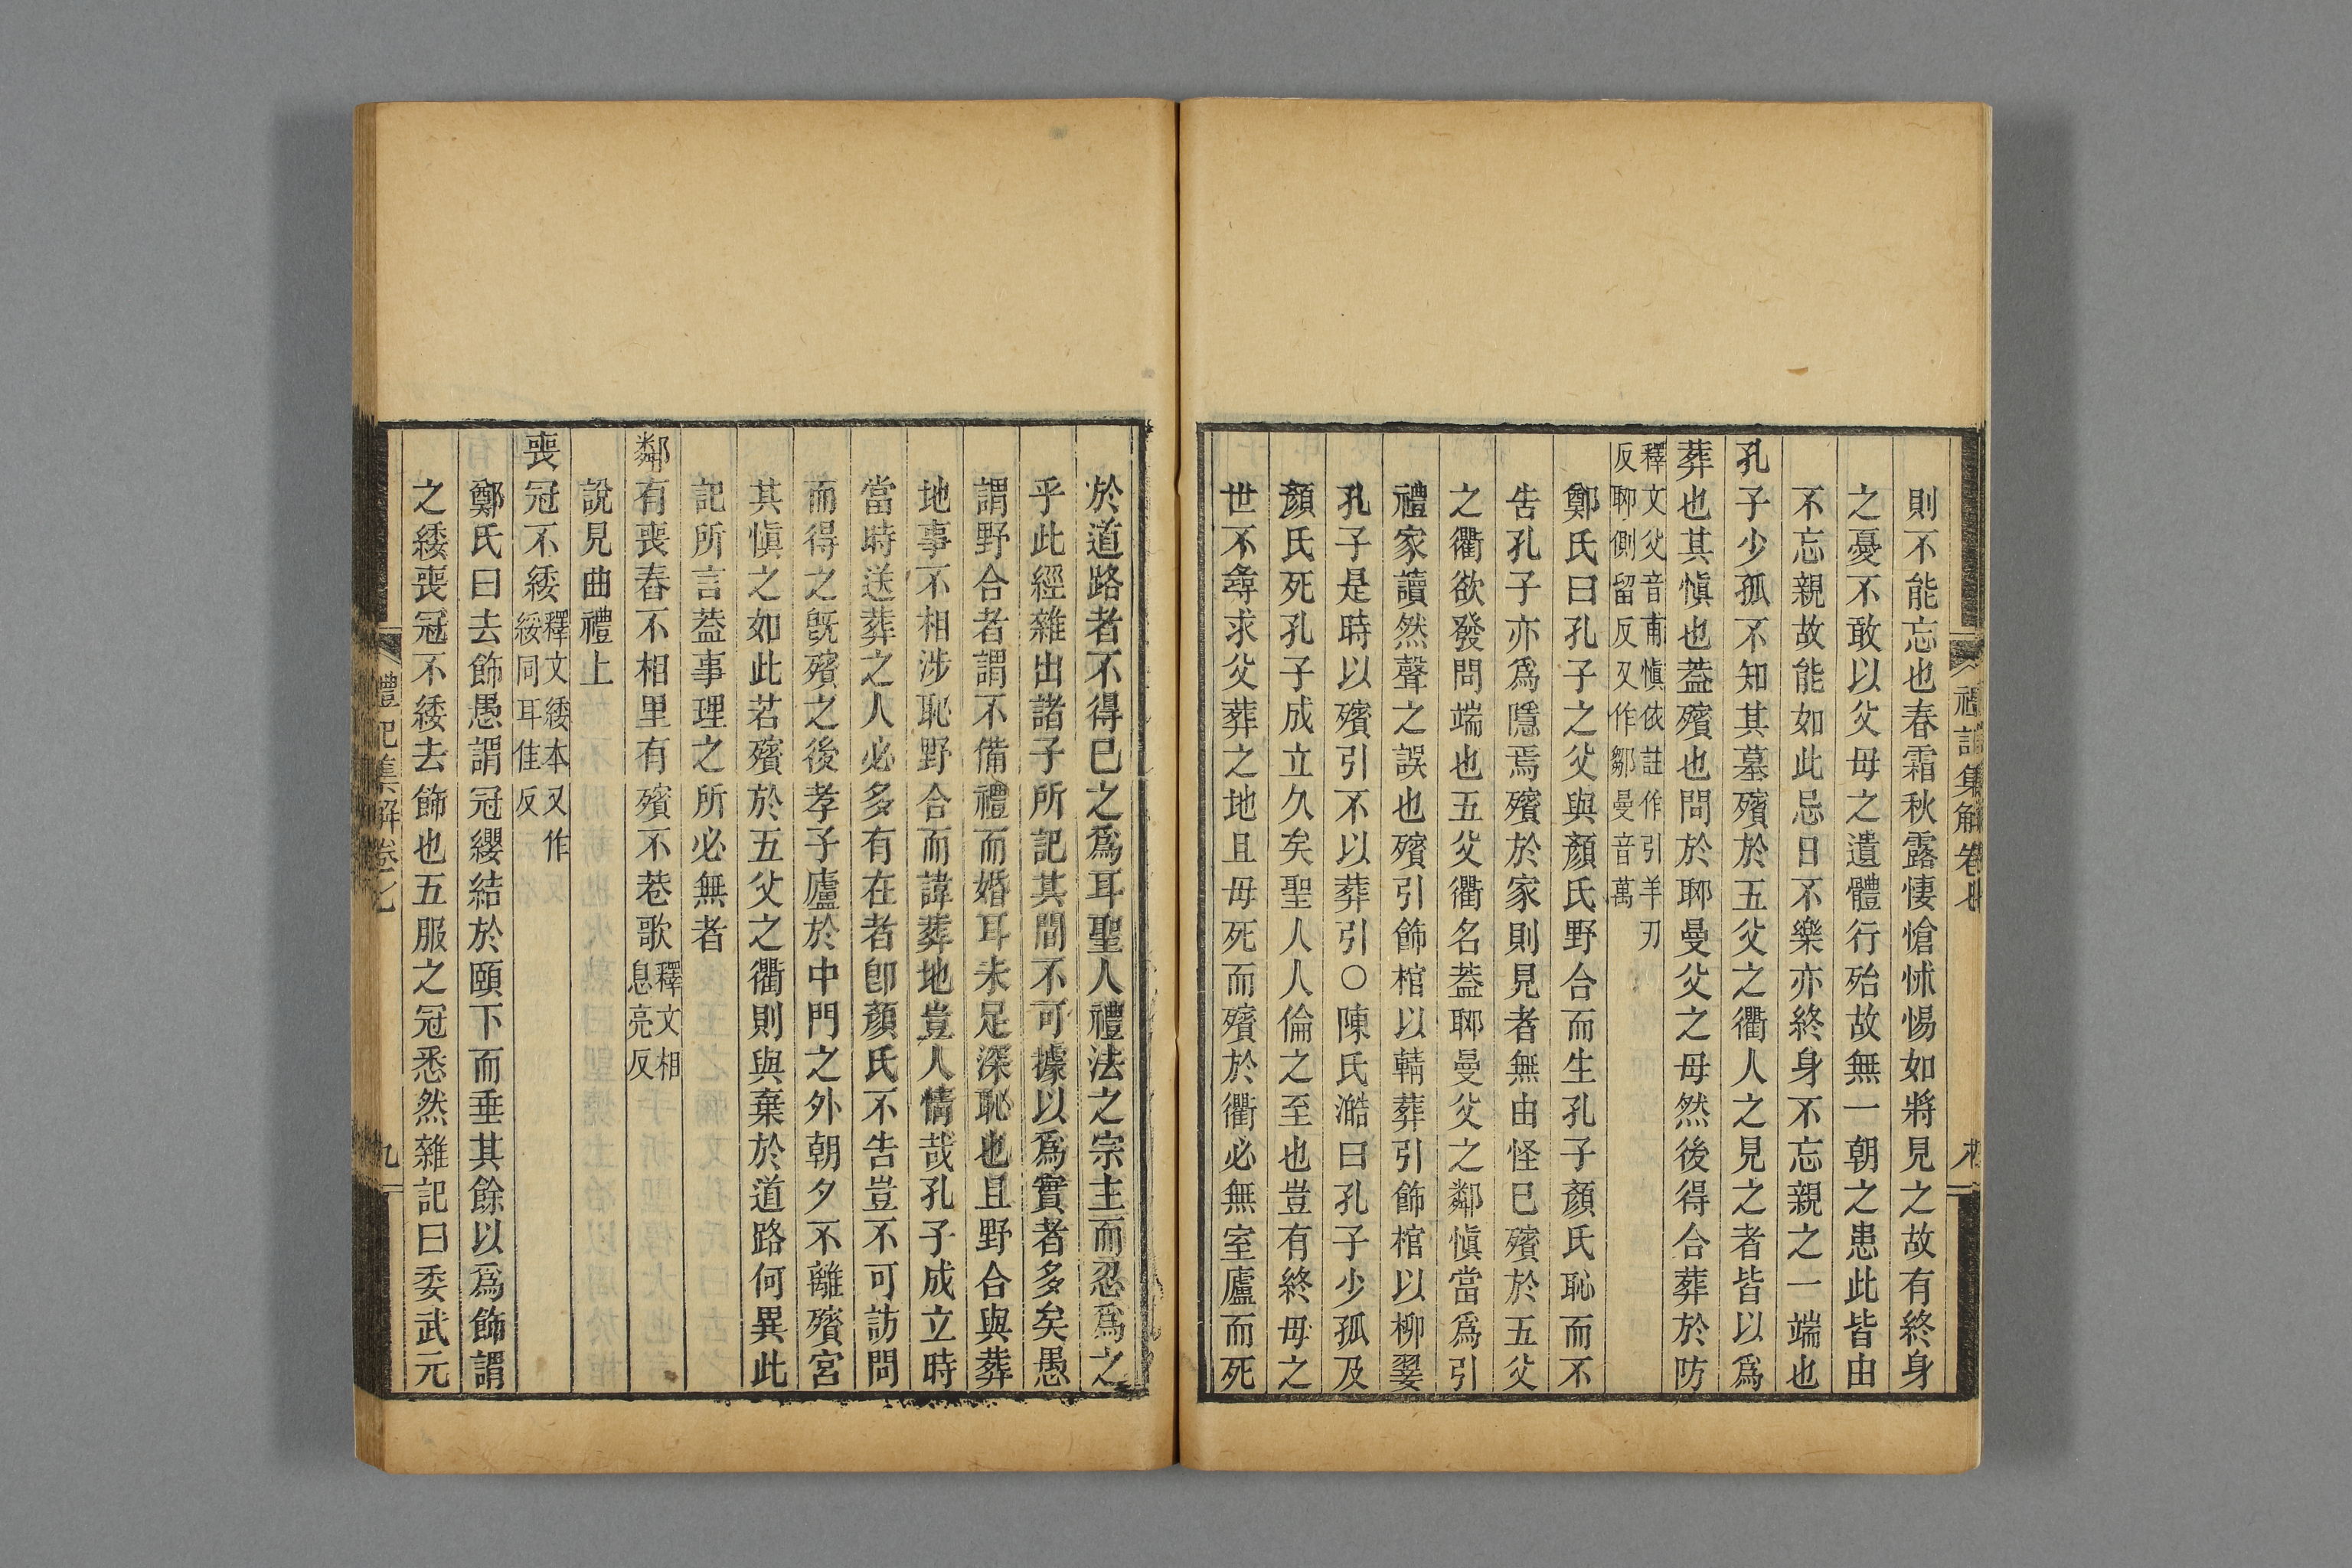 則不能忘也春霜秋露悽愴怵惕如將見之故有終身
之憂不敢以父母之遺體行殆故無一朝之患此皆由
不忘親故能如此忌日不樂亦終身不忘親之一端也
孔子少孤不知其墓殯於五父之衢人之見之者皆以爲
葬也其愼也葢殯也問於郰曼父之母然後得合葬於防
釋文父音甫愼依註作引羊刃
反聊側留反又作鄒曼音萬
鄭氏曰孔子之父與顏氏野合而生孔子顏氏恥而不
告孔子亦爲隱焉殯於家則見者無由怪已殯於五父
之衢欲發問端也五父衢名葢郰曼父之鄰愼當爲引
禮家讀然聲之誤也殯引飾棺以輤葬引飾棺以柳翣
孔子是時以殯引不以葬引○陳氏澔曰孔子少孤及
顏氏死孔子成立久矣聖人人倫之至也豈有終母之
世不尋求父葬之地且母死而殯於衢必無室廬而死
於道路者不得已之爲耳聖人禮法之宗主而忍爲之
乎此經雜出諸子所記其間不可據以爲實者多矣愚
謂野合者謂不備禮而婚耳未足深恥也且野合與葬
地事不相涉恥野合而諱葬地豈人情哉孔子成立時
當時送葬之人必多有在者卽顏氏不告豈不可訪問
而得之旣殯之後孝子廬於中門之外朝夕不離殯宮
其愼之如此若殯於五父之衢則與棄於道路何異此
記所言葢事理之所必無者
鄰有喪舂不相里有殯不巷歌釋文相
息亮反
說見曲禮上
喪冠不緌釋文緌本又作
綏同耳佳反
鄭氏曰去飾愚謂冠纓結於頤下而垂其餘以爲飾謂
之緌喪冠不緌去飾也五服之冠悉然雜記曰委武元
禮記集解卷七
九